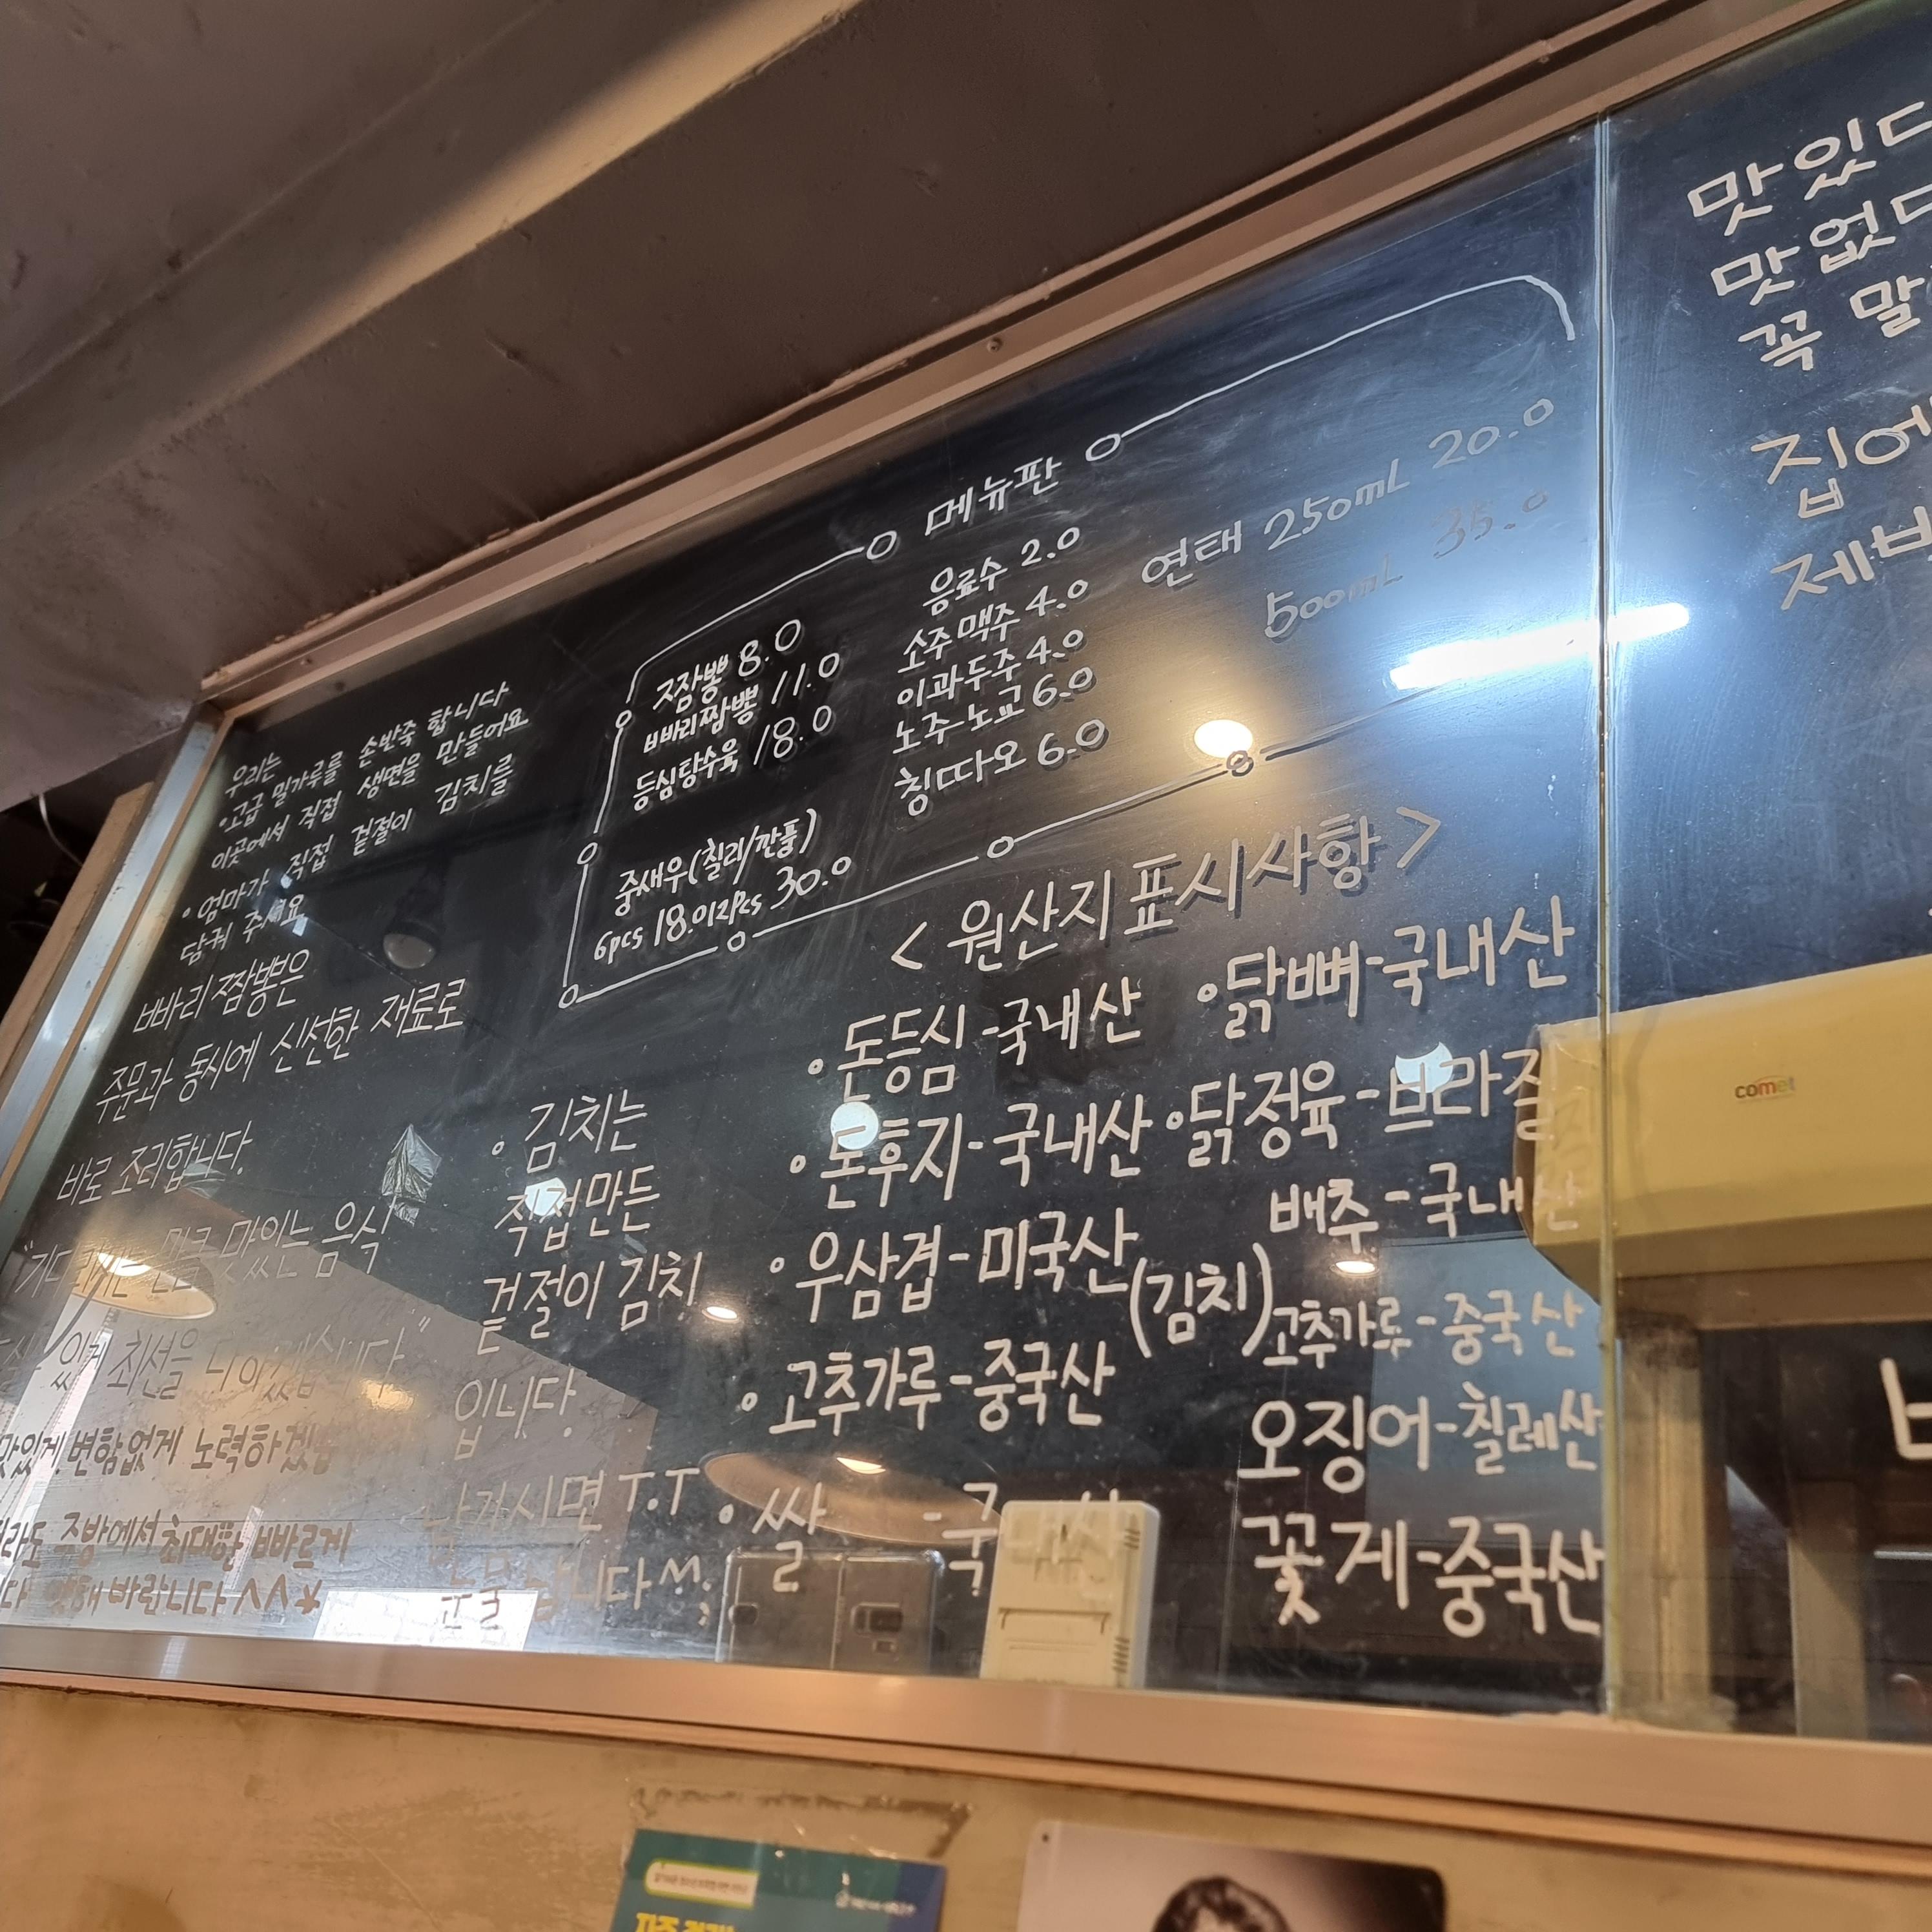 우리는
•고급 밀가루를 손반죽 합니다
이곳에서 직접 생면을 만들어요
•엄마가 직접 겉절이 김치를
담궈 주세요
빠리 짬뽕은
주문과 동시에 신선한 재료로
바로 조리합니다.
맛있는 음식"
있게 최선을
맛있게 변함없게 노력하겠습
주방에서 최대한 빠르게
바랍니다 ^^*
•김치는
직접만든
겉절이 김치
입니다
남기시면 T.T
메뉴판
짬뽕 8.0
빠리짬뽕 11.0
등심탕수육 18.0
중새우(칠리/깐풍)
6pcs 18.0 12pcs 30.0
음료수 2.0
소주 맥주 4.0
이과두주 4.0
노주노교 6.0
칭따오 6.0
연태 250mL 20.0
500mL 35.0
<원산지표시사항>
•돈등심-국내산
•돈후지-국내산
•우삼겹-미국산
•고추가루-중국산
•쌀
•닭뼈-국내산
•닭정육-브라질
(김치)
배추-국내산
고추가루-중국산
오징어-칠레산
꽃게-중국산
맛있
맛없
꼭 말
집에
제
comet